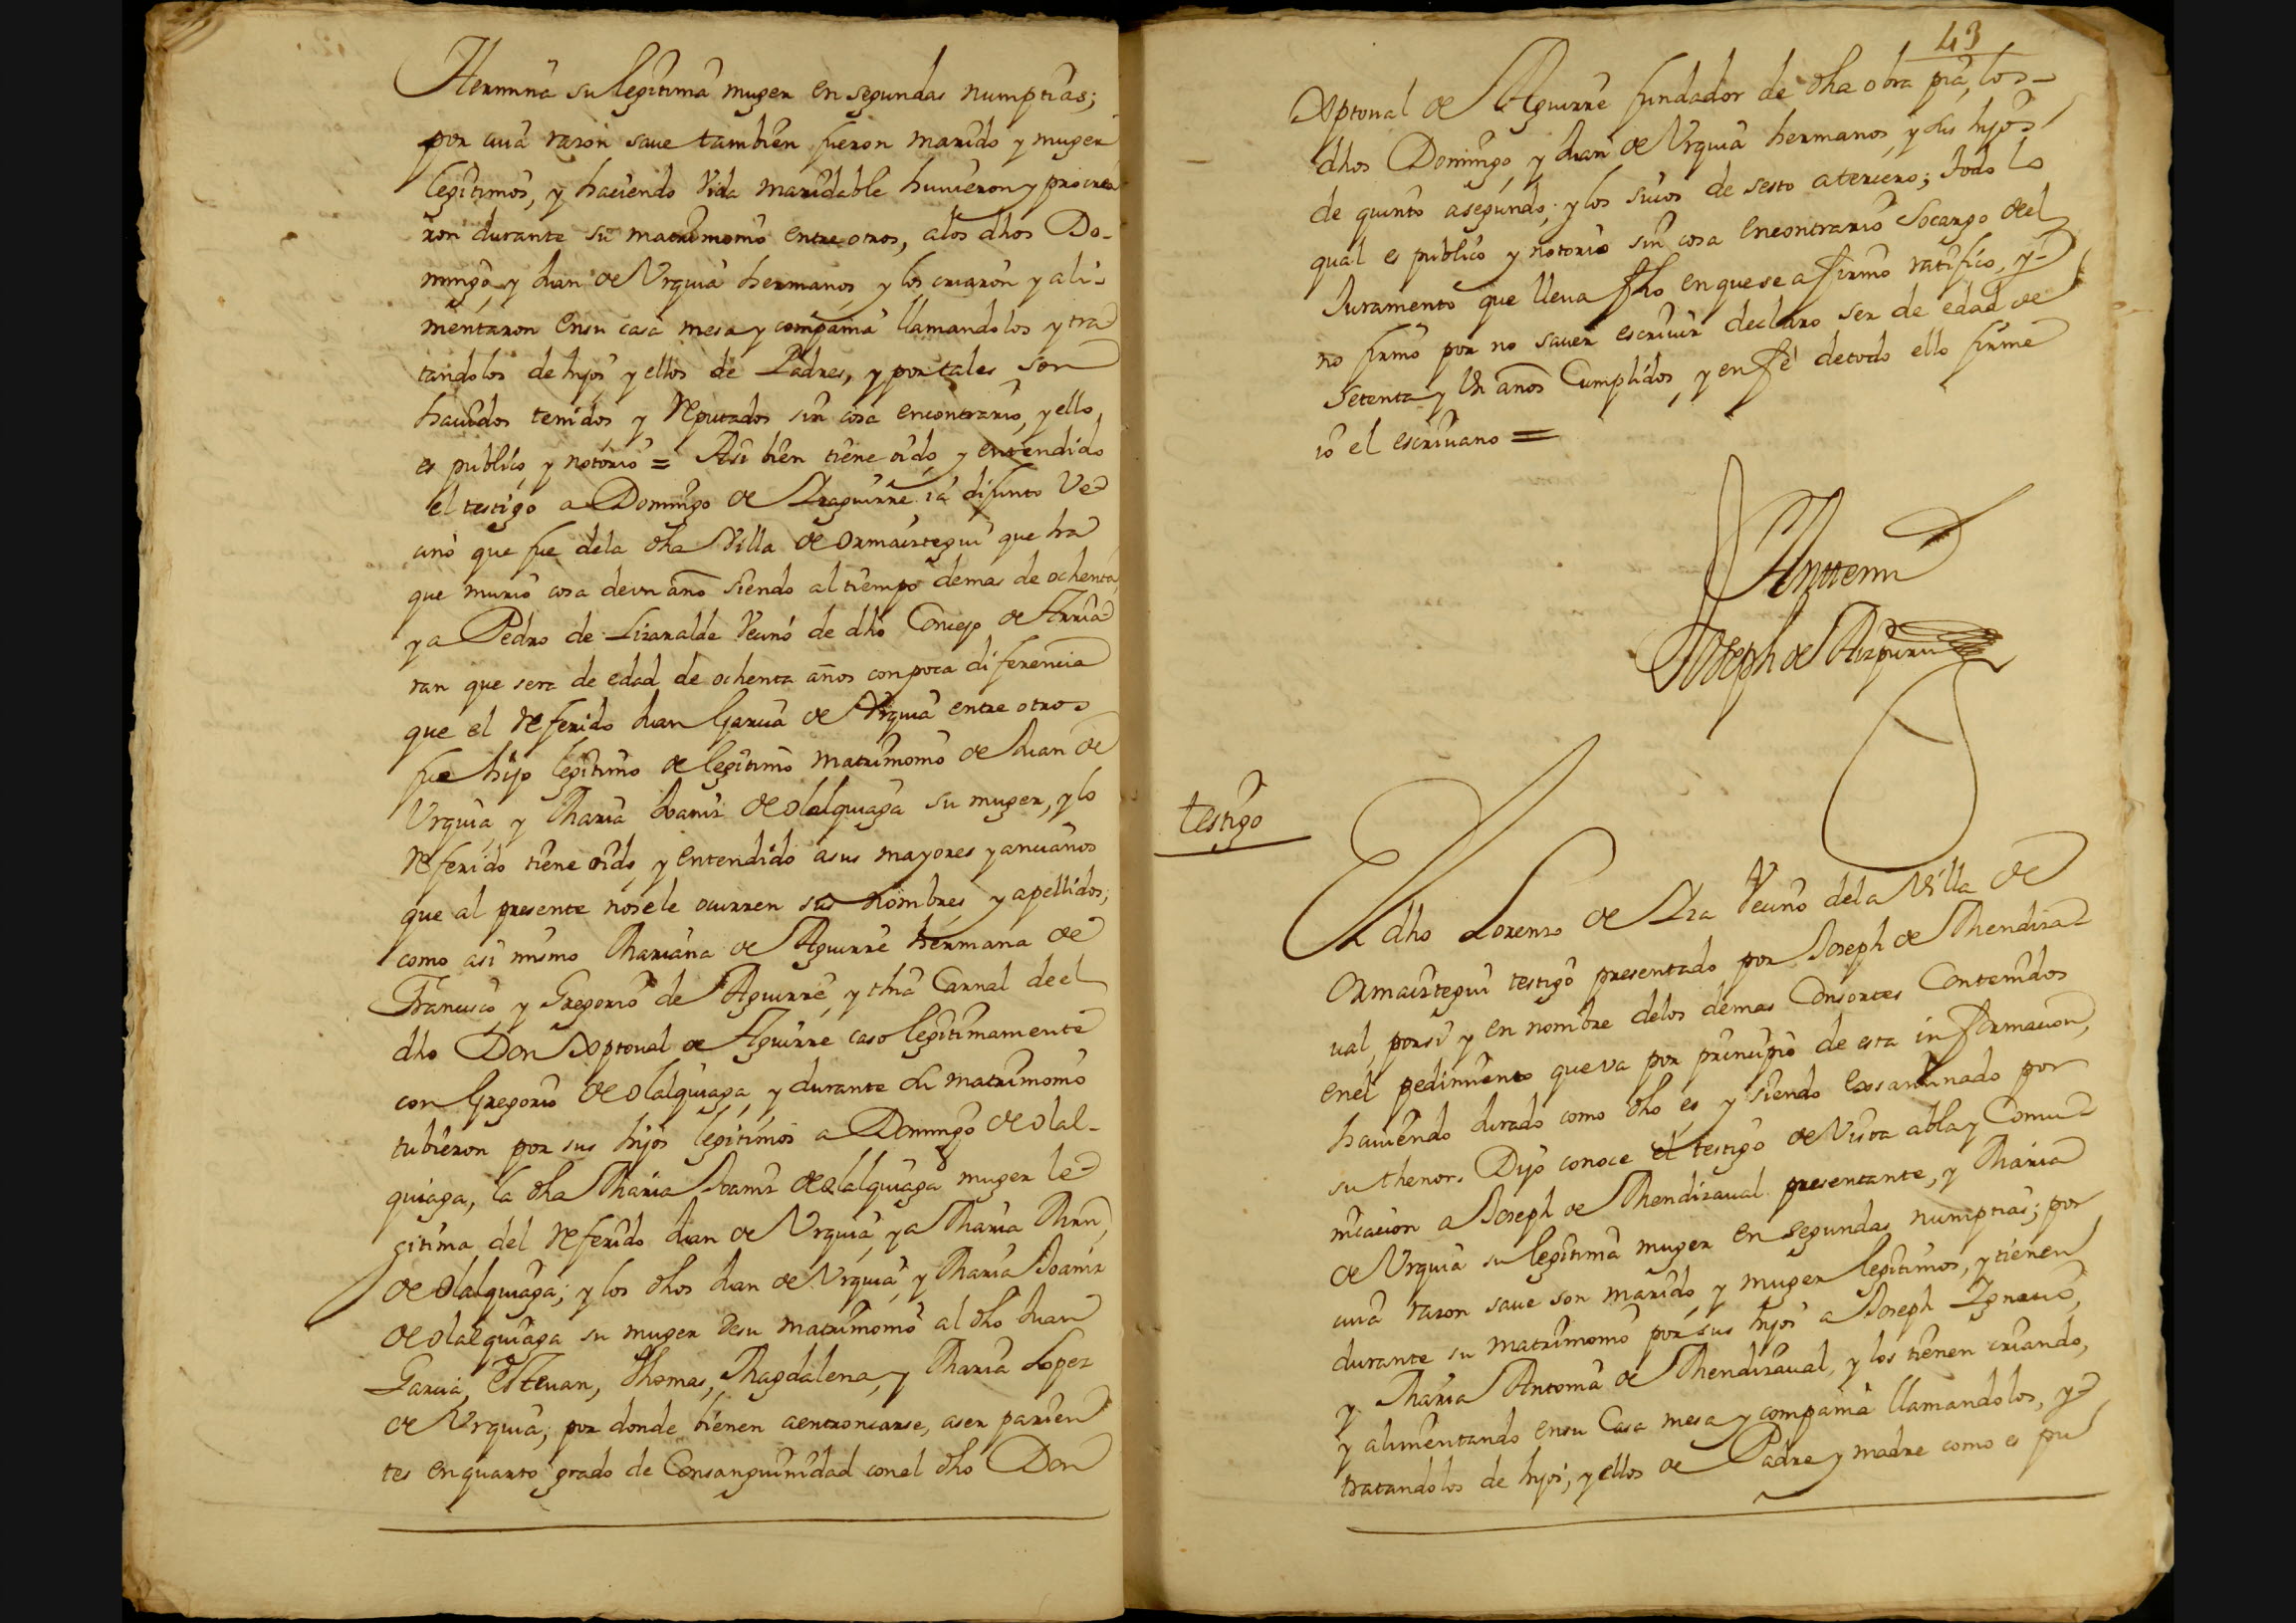 Hermina su legitima muger en segundas numptias;
por cuia razon saue tambien fueron marido y muger
legitimos, y haciendo Vida maridable huuieron y procrea
ron durante su matrimonio entre otros, alos dhos Do-
mingo, y Juan de Vrquia hermanos, y los criaron y ali-
mentaron ensu casa mesa y compañia llamandolos y tra
tandolos de hijos y ellos de Padres, y por tales son
hauidos tenidos y Reputados sin cosa encontrario, y ello,
es publico, y notorio = Asi bien tiene oido, y entendido
el testigo a Domingo de Izaguirre ia difunto Ve-
cino que fue dela dha Villa de Ormaiztegui que ha
que murio cosa de vn año siendo al tiempo demas de ochenta,
y a Pedro de Lizaralde Vecino de dho Concejo de Arria
ran que sera de edad de ochenta años con poca diferencia
que el Referido Juan Garcia de Vrquia entre otros
fue hijo legitimo de legitimo matrimonio de Juan de
Vrquia, y Maria Joaniz de olalquiaga su muger, y lo
Referido tiene oido, y entendido asus mayores y ancianos
que al presente nosele ocurren sus nombres, y apellidos;
como asi mismo Mariana de Aguirre hermana de
Francisco, y Gregorio de Aguirre, y thia Carnal de el
dho Don Xptoual de Aguirre caso legitimamente
con Gregorio de olalquiaga, y durante su matrimonio
tubieron por sus hijos legitimos a Domingo de olal-
quiaga, la dha Maria Joaniz de olalquiaga muger le-
gitima del Referido Juan de Vrquia, y a Maria Mrn,
de olalquiaga; y los dhos Juan de Vrquia, y Maria Joaniz
de olalquiaga su muger desu matrimonio al dho Juan
Garcia, Esteuan, Thomas, Magdalena, y Maria Lopez
de Vrquia; por donde bienen aentroncarse, aser parien
tes enquarto grado de Consanguinidad conel dho Don
43
Xptoual de Aguirre fundador de dha obra pia, los-
dhos Domingo, y Juan de Vrquia hermanos, y sus hijos
de quinto asegundo; y los suios de sesto atercero; todo lo
qual es publico y notorio sin cosa encontrario Socargo del
Juramento que lleua fho en que se afirmo ratifico, y-
no firmo por no sauer escriuir declaro ser de edad de
setenta y Vn años Cumplidos, y en fe detodo ello firme
io el escriuano =
Anttemi
Joseph de Aizpuru
testigo
El dho Lorenzo de Iza Vecino dela Villa de
Ormaiztegui testigo presentado por Joseph de Mendiza
ual, porsi y en nombre delos demas Consortes Contenidos
enel pedimiento que va por principio de esta informacion,
hauiendo Jurado como dho es, y siendo Exsaminado por
su thenor. Dijo conoce el testigo de Vista abla y Comu
nicacion a Joseph de Mendizaual presentante, y Maria
de Vrquia su legitima muger en segundas numptias; por
cuia razon saue son marido, y muger legitimos, y tienen
durante su matrimonio por sus hijos a Joseph Ignacio,
y Maria Antonia de Mendizaual, y los tienen criando,
y alimentando ensu Casa mesa y compañia llamandolos, y-
tratandolos de hijos; y ellos de Padre y madre como es pu